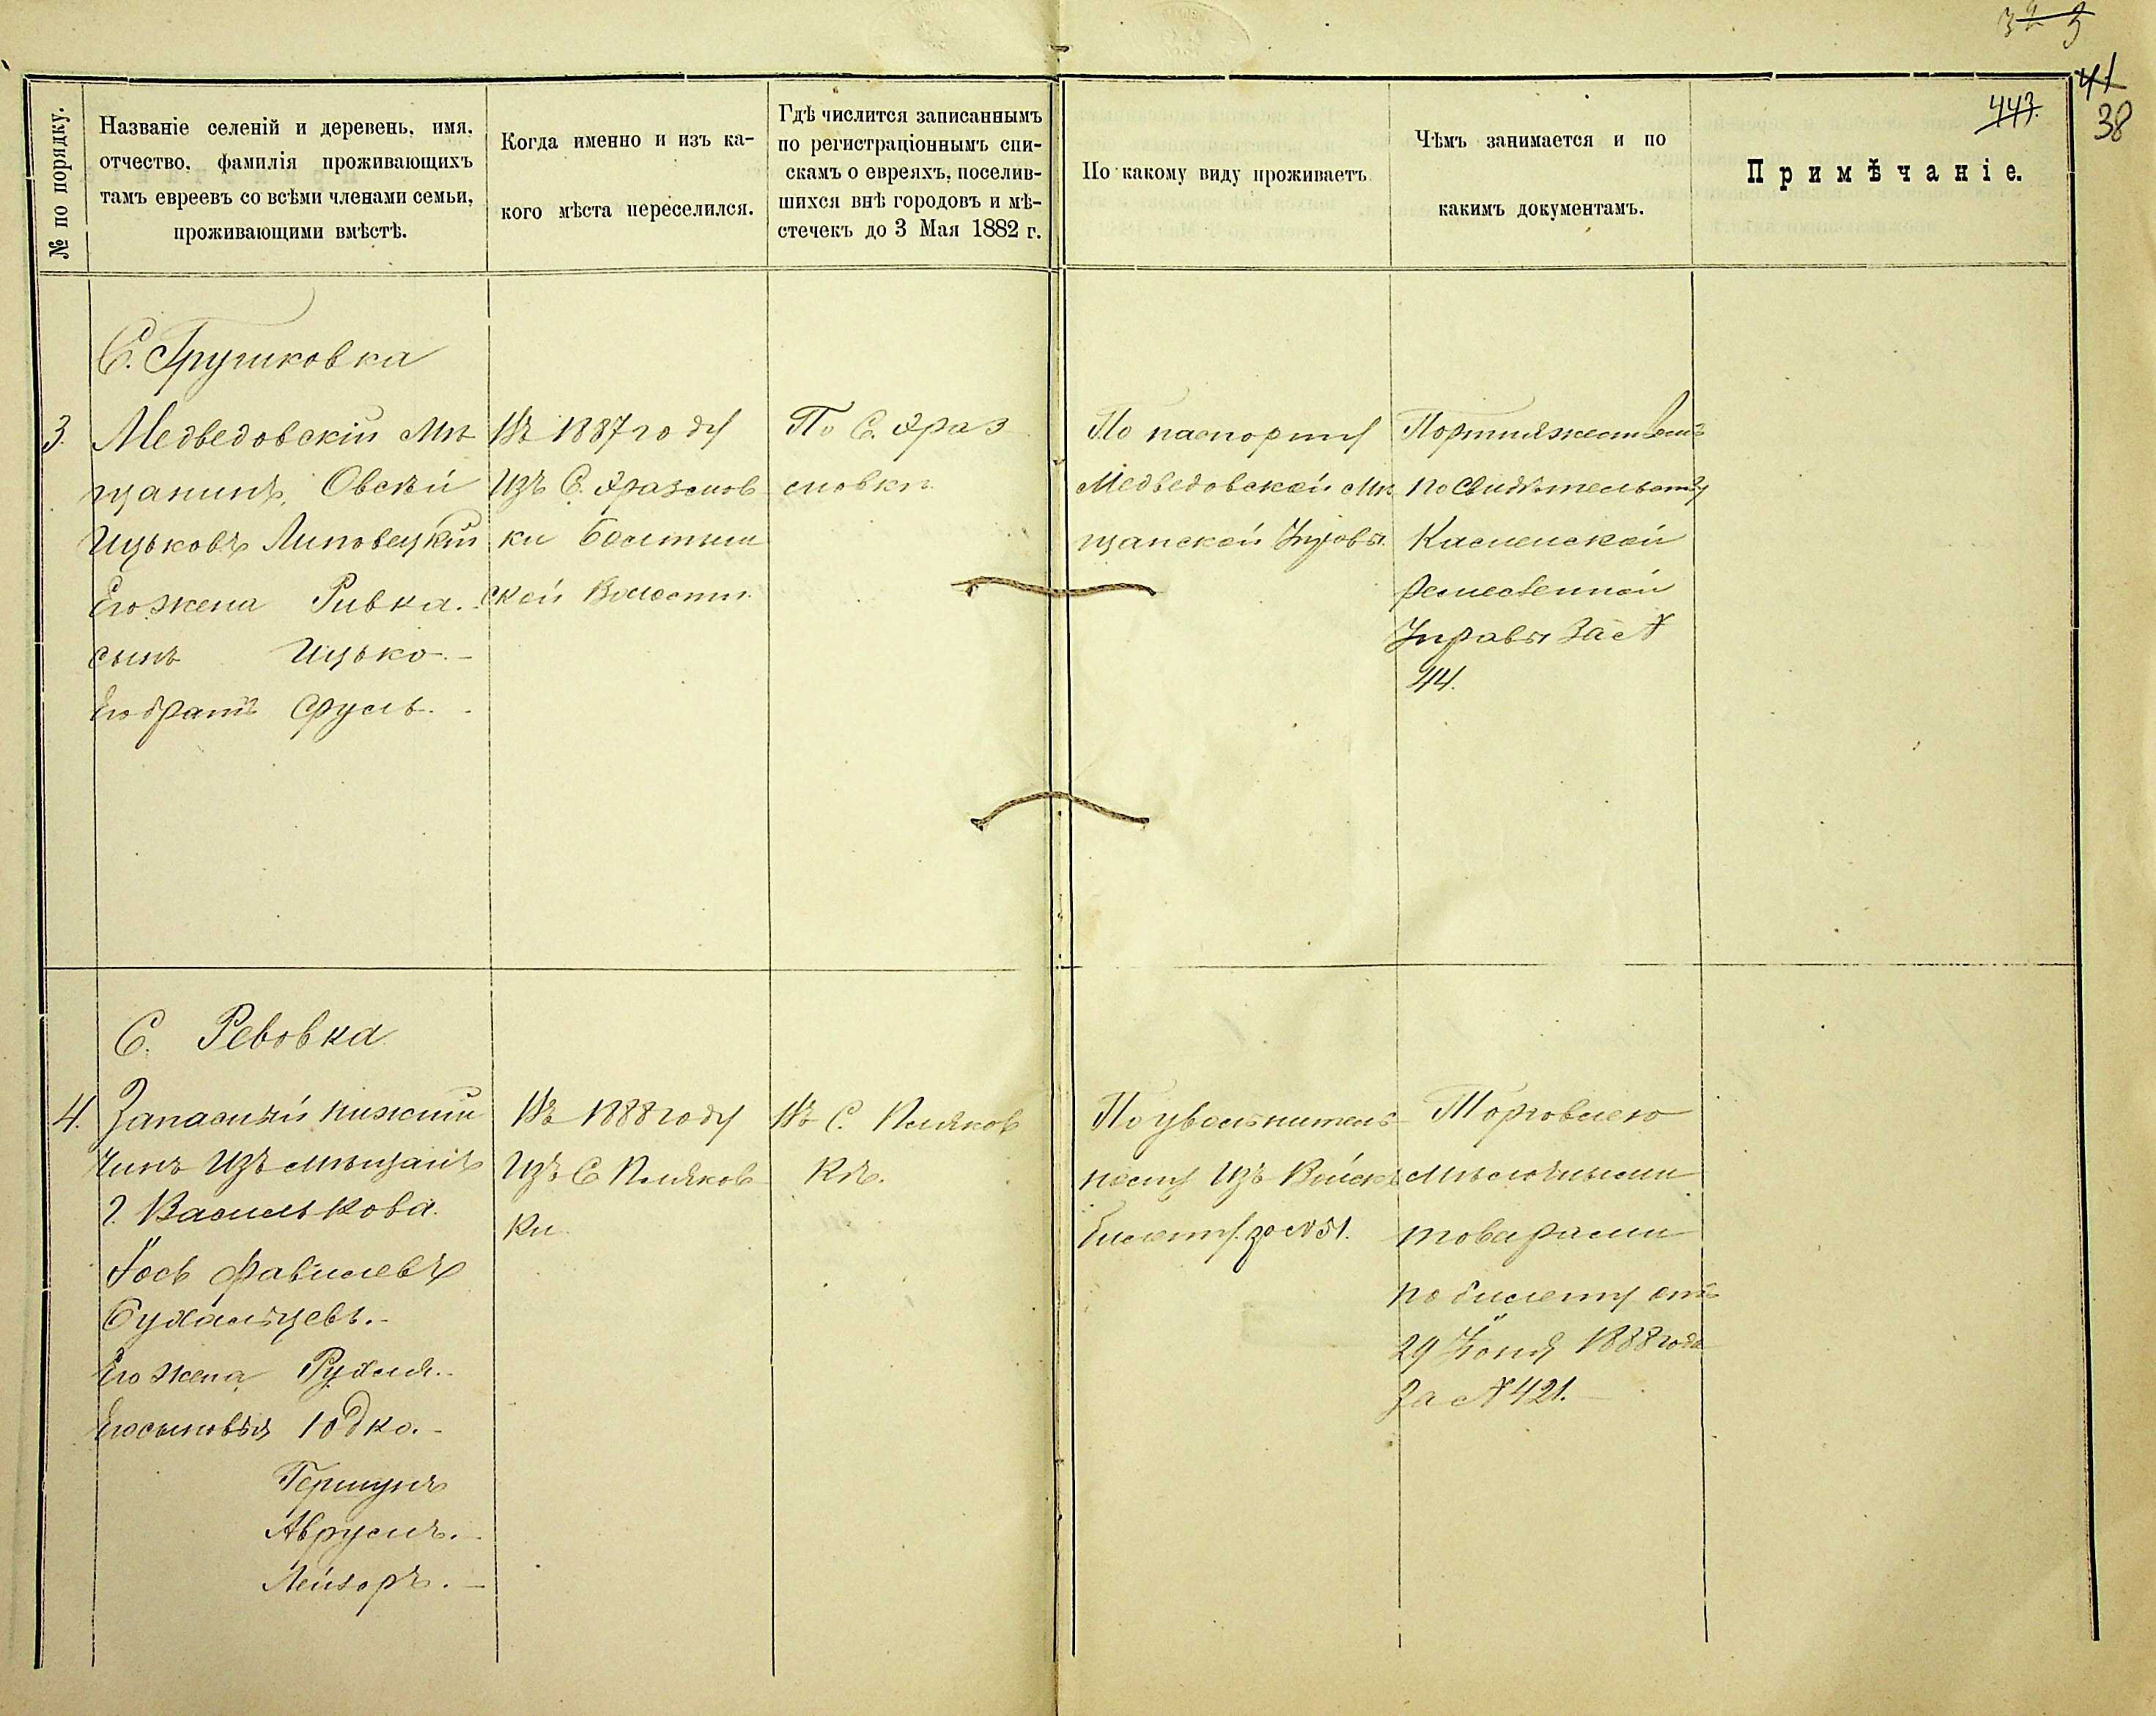 41
443.
38
№ по порядку.
Названіе селеній и деревень, имя,
отчество, фамилія проживающихъ
тамъ евреевъ со всѣми членами семьи,
проживающими вмѣстѣ.
Когда именно и изъ ка-
кого мѣста переселился.
Гдѣ числится записаннымъ
по регистраціоннымъ спи-
скамъ о евреяхъ, поселив-
шихся внѣ городовъ и мѣ-
стечекъ до 3 Мая 1882 г.
По какому виду проживаетъ
Чѣмъ занимается и по
какимъ документамъ.
Примѣчаніе.
С. Грушковка
3.
Медведовскій Мѣ
щанинъ, Овсѣй
Ицьковъ Липовецкій
Его жена Ривка.
сынъ Ицько.-
Его братъ Сруль.
Въ 1887 году
Изъ С.
ки
ской Волости.
По С.
По паспорту
Медведовской Мѣ
щанской Управы
Портняжествомъ
по свидѣтельству
Каменской
Ремесленной
Управы За №
44.
С. Ревовка
4.
Запасный нижній
Чинъ Изъ мѣщанъ
г. Василькова.
Іось
Его жена Рухля.
Его сыновья Юдко.-
Гершунъ
Аврумъ.
Лейзоръ.-
Въ 1888 году
Изъ С Поляков
ки
Въ С. Поляков
кѣ.
По увольнитель
ному Изъ Войскъ
билету за № 51.
Торговлею
мѣлочными
товарами
по билету отъ
29 Іюня 1888 года
За № 421.-